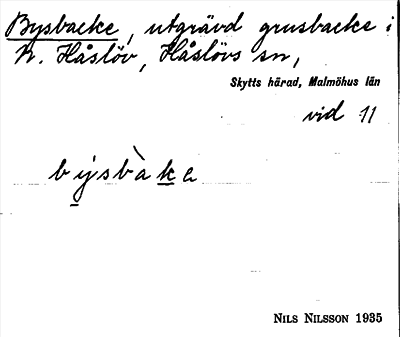 Bysbacke, utgrävd grusbacke i
N. Håslöv, Håslövs sn,
Skytts härad, Malmöhus län
vid 11
býsbàke
NILS NILSSON 1935